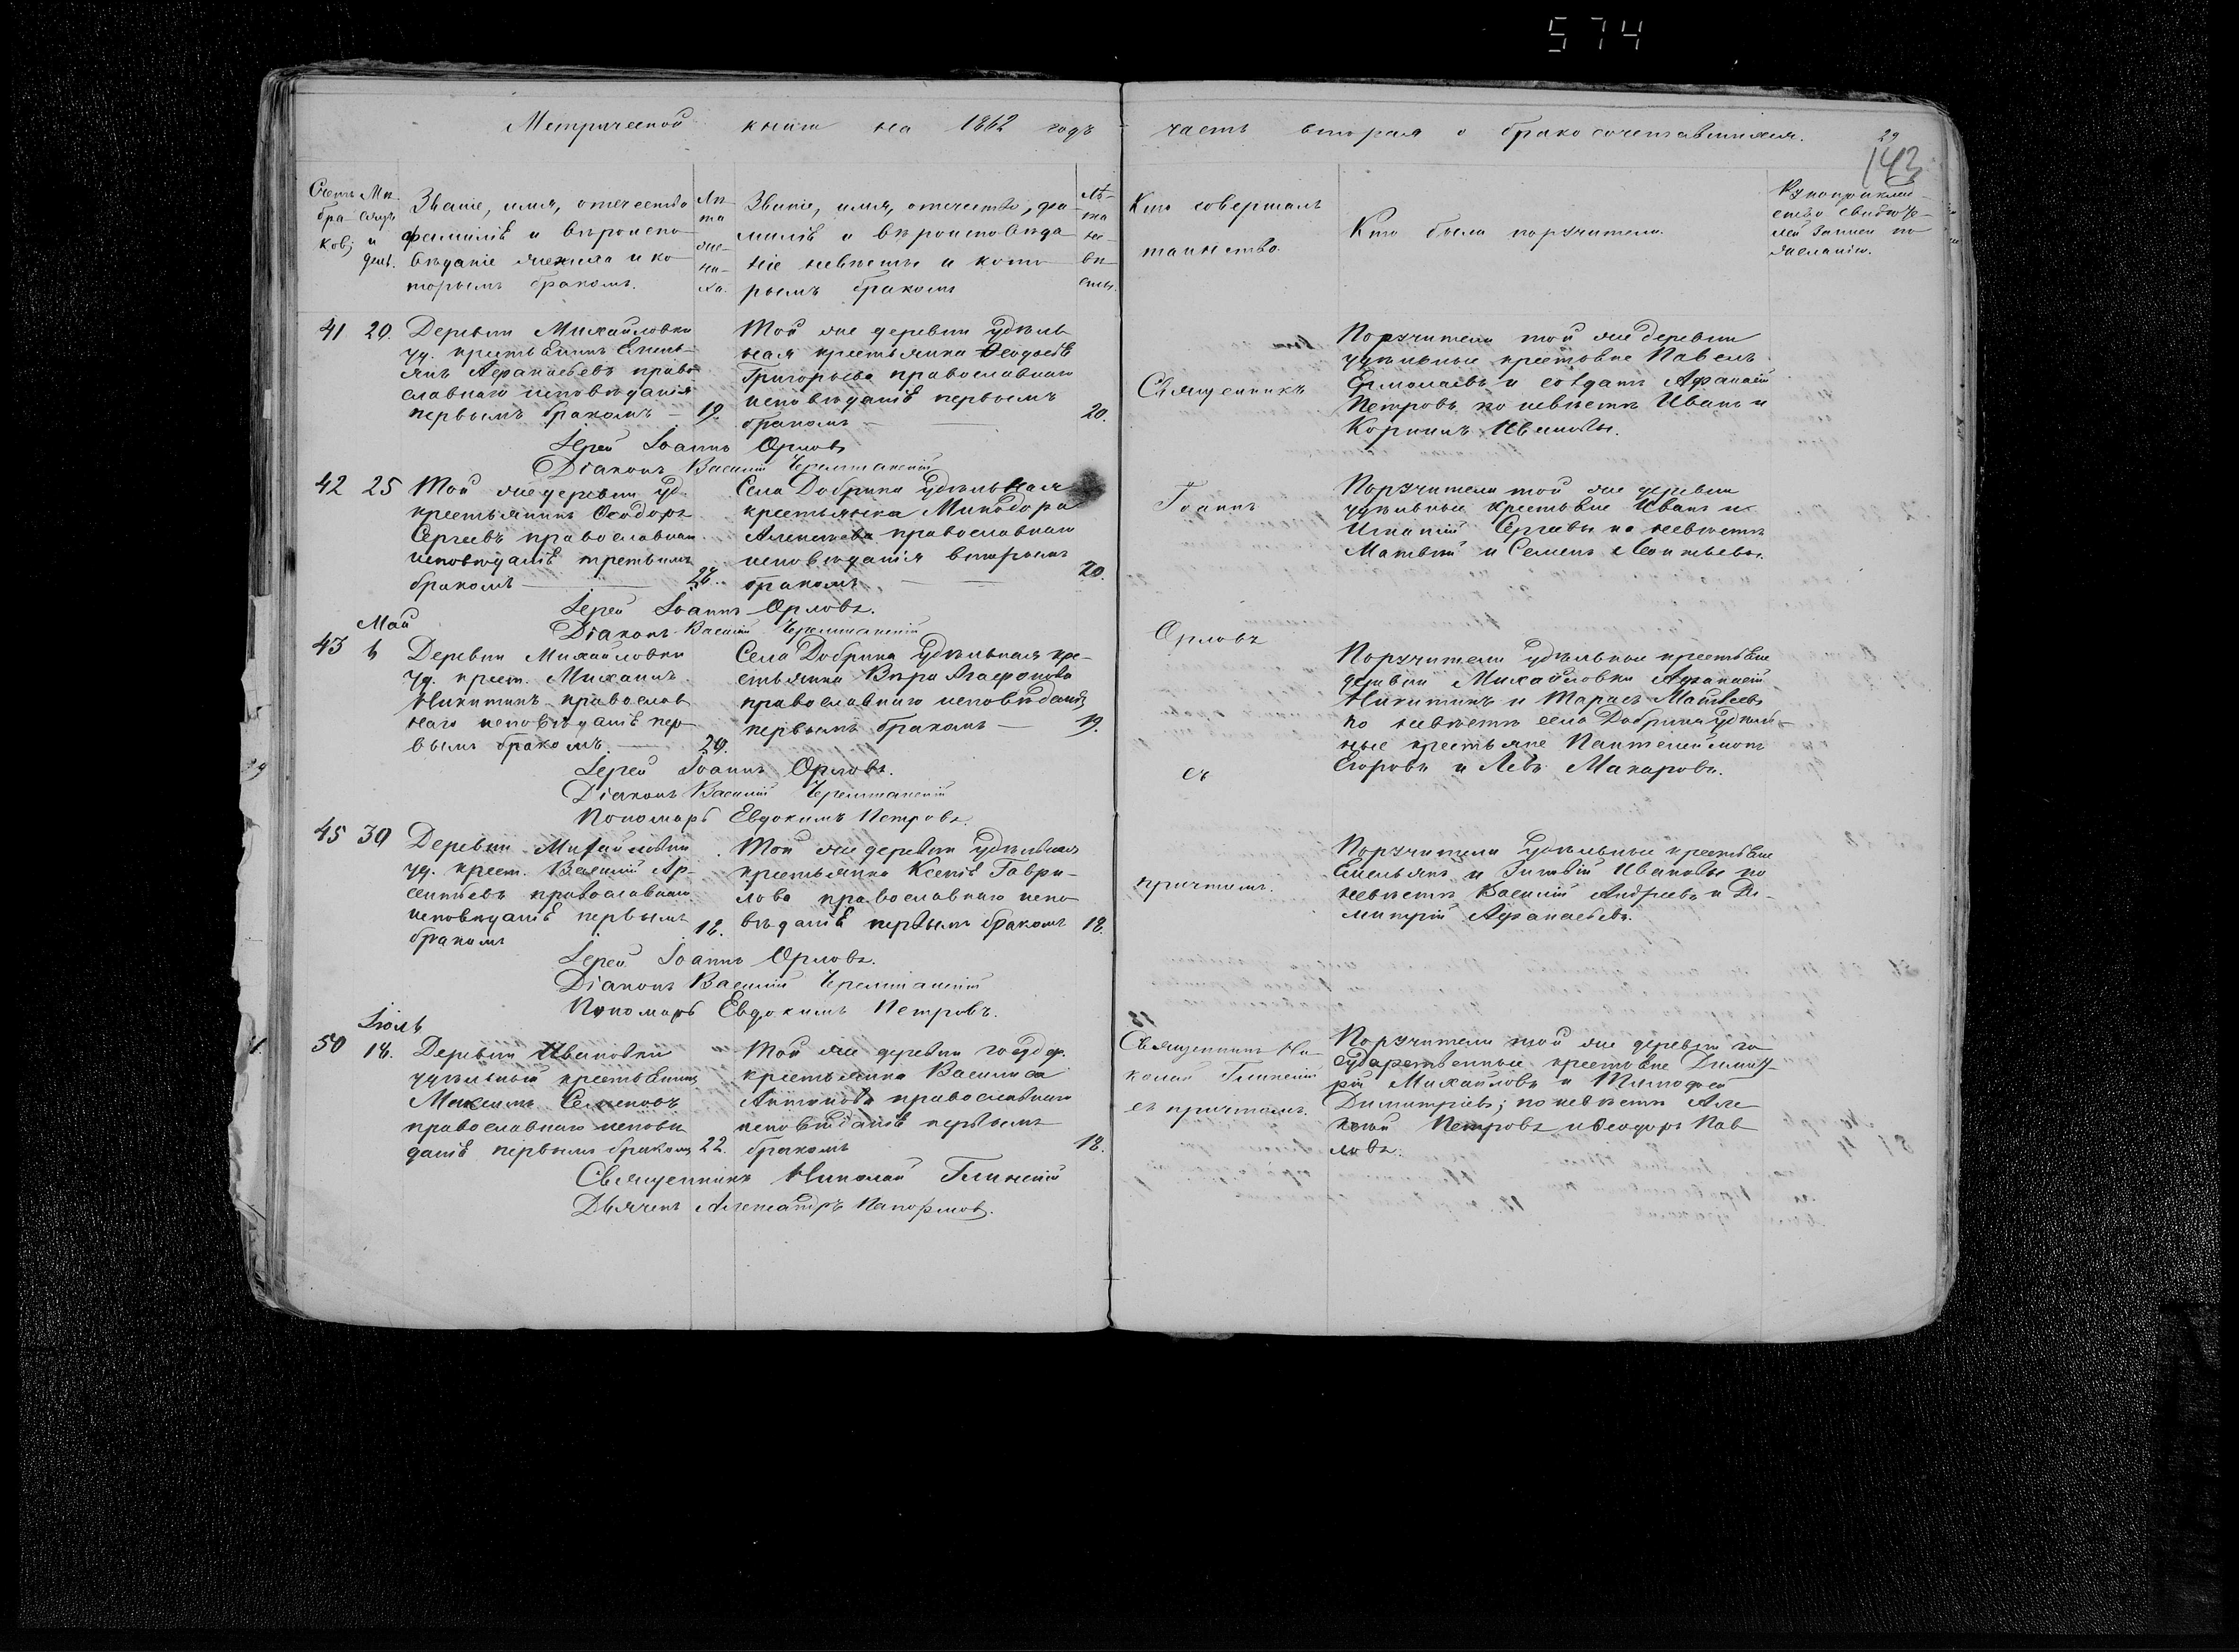 574
Метрической книги на 1862 годъ часть вторая о бракосочетавшихся.
29
143
Счетъ бра- ков;
Ме- сяцъ и день.
Званіе, имя, отечество
фамилія и вѣроиспо-
вѣданіе жениха и ко-
торымъ бракомъ.
Лѣ-
та
же-
ни-
ха.
Званіе, имя, отечество, фа-
милія и вѣроисповѣда-
ніе невѣсты и кото-
рымъ бракомъ
Лѣ-
та
не-
вѣ-
сты.
Кто совершалъ
таинство.
Кто были поручители.
Рукоприклад-
ство свидѣте-
лей записи по
желанію.
41 20. Деревни Михайловки
уд. крестьянинъ Емель-
янъ Афанасьевъ право-
славнаго исповѣданія
первымъ бракомъ — 19.
Той же деревни удѣль-
ная крестьянка Феодосія
Григорьева православнаго
исповѣданія первымъ
бракомъ — 20.
Священникъ
Поручители той же деревни
удѣльные крестьяне Павелъ
Ермолаевъ и солдатъ Афанасій
Петровъ по невѣстѣ Иванъ и
Корнилъ Ивановы.
Іерей Іоаннъ Орловъ
Діаконъ Василій Черемшанскій
42 25 Той же деревни уд.
крестьянинъ Феодоръ
Сергеевъ православнаго
исповѣданія третьимъ
бракомъ — 28.
Села Добрина удѣльная
крестьянка Минодора
Алексеева православнаго
исповѣданія вторымъ
бракомъ — 20.
Іоаннъ
Поручители той же деревни
удѣльные крестьяне Иванъ и
Игнатій Сергеевы по невѣстѣ
Матвѣй и Семенъ Леонтьевы.
Іерей Іоаннъ Орловъ.
Діаконъ Василій Черемшанскій
Май
43 6 Деревни Михайловки
уд. крест. Михаилъ
Никитинъ православ-
наго исповѣданія пер-
вымъ бракомъ. — 20.
Села Добрина удѣльная кре-
стьянка Вѣра Агафонова
православнаго исповѣданія
первымъ бракомъ — 19.
Орловъ
Поручители удѣльные крестьяне
деревни Михайловки Афанасій
Никитинъ и Тарасъ Матвеевъ
по невѣстѣ села Добрина удѣль-
ные крестьяне Пантелеймонъ
Егоровъ и Левъ Макаровъ.
Іерей Іоаннъ Орловъ.
Діаконъ Василій Черемшанскій
Пономарь Евдокимъ Петровъ.
съ
45 30 Деревни Михайловки
уд. крест. Василій Ар-
сентьевъ православнаго
исповѣданія первымъ
бракомъ 18.
Той же деревни удѣльная
крестьянка Ксенія Гаври-
лова православнаго испо-
вѣданія первымъ бракомъ 18.
причтомъ.
Поручители удѣльные крестьяне
Емельянъ и Зиновій Ивановы по
невѣстѣ Василій Андреевъ и Ди-
митрій Афанасьевъ.
Іерей Іоаннъ Орловъ.
Діаконъ Василій Черемшанскій
Пономарь Евдокимъ Петровъ.
Іюль
50 18. Деревни Ивановки
удѣльный крестьянинъ
Максимъ Семеновъ
православнаго исповѣ-
данія первымъ бракомъ 22.
Той же деревни государ.
крестьянка Василиса
Антонова православнаго
исповѣданія первымъ
бракомъ 18.
Священникъ Ни-
колай Глинскій
съ причтомъ.
Поручители той же деревни го-
сударственные крестьяне Димит-
рій Михайловъ и Тимофей
Димитріевъ; по невѣстѣ Але-
ксей Петровъ и Феодоръ Пав-
ловъ.
Священникъ Николай Глинскій
Дьячекъ Александръ